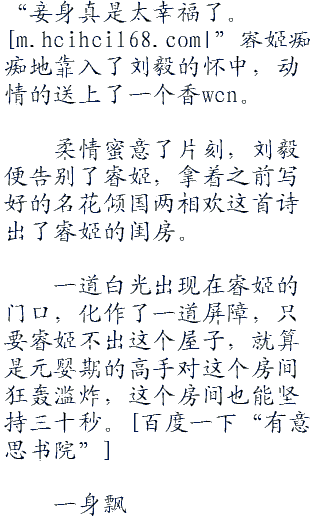 “妾身真是太幸福了。
[m.hcihcil68.com|”睿姬痴
痴地靠入了刘毅的怀中，动
情的送上了一个香wcn。
柔情蜜意了片刻，刘毅
便告别了睿姬，拿着之前写
好的名花倾国两相欢这首诗
出了睿姬的闺房。
一道白光出现在睿姬的
门口，化作了一道屏障，只
要睿姬不出这个屋子，就算
是元婴期的高手对这个房间
狂轰滥炸，这个房间也能坚
持三十秒。[百度一下“有意
思书院”]
一身飘